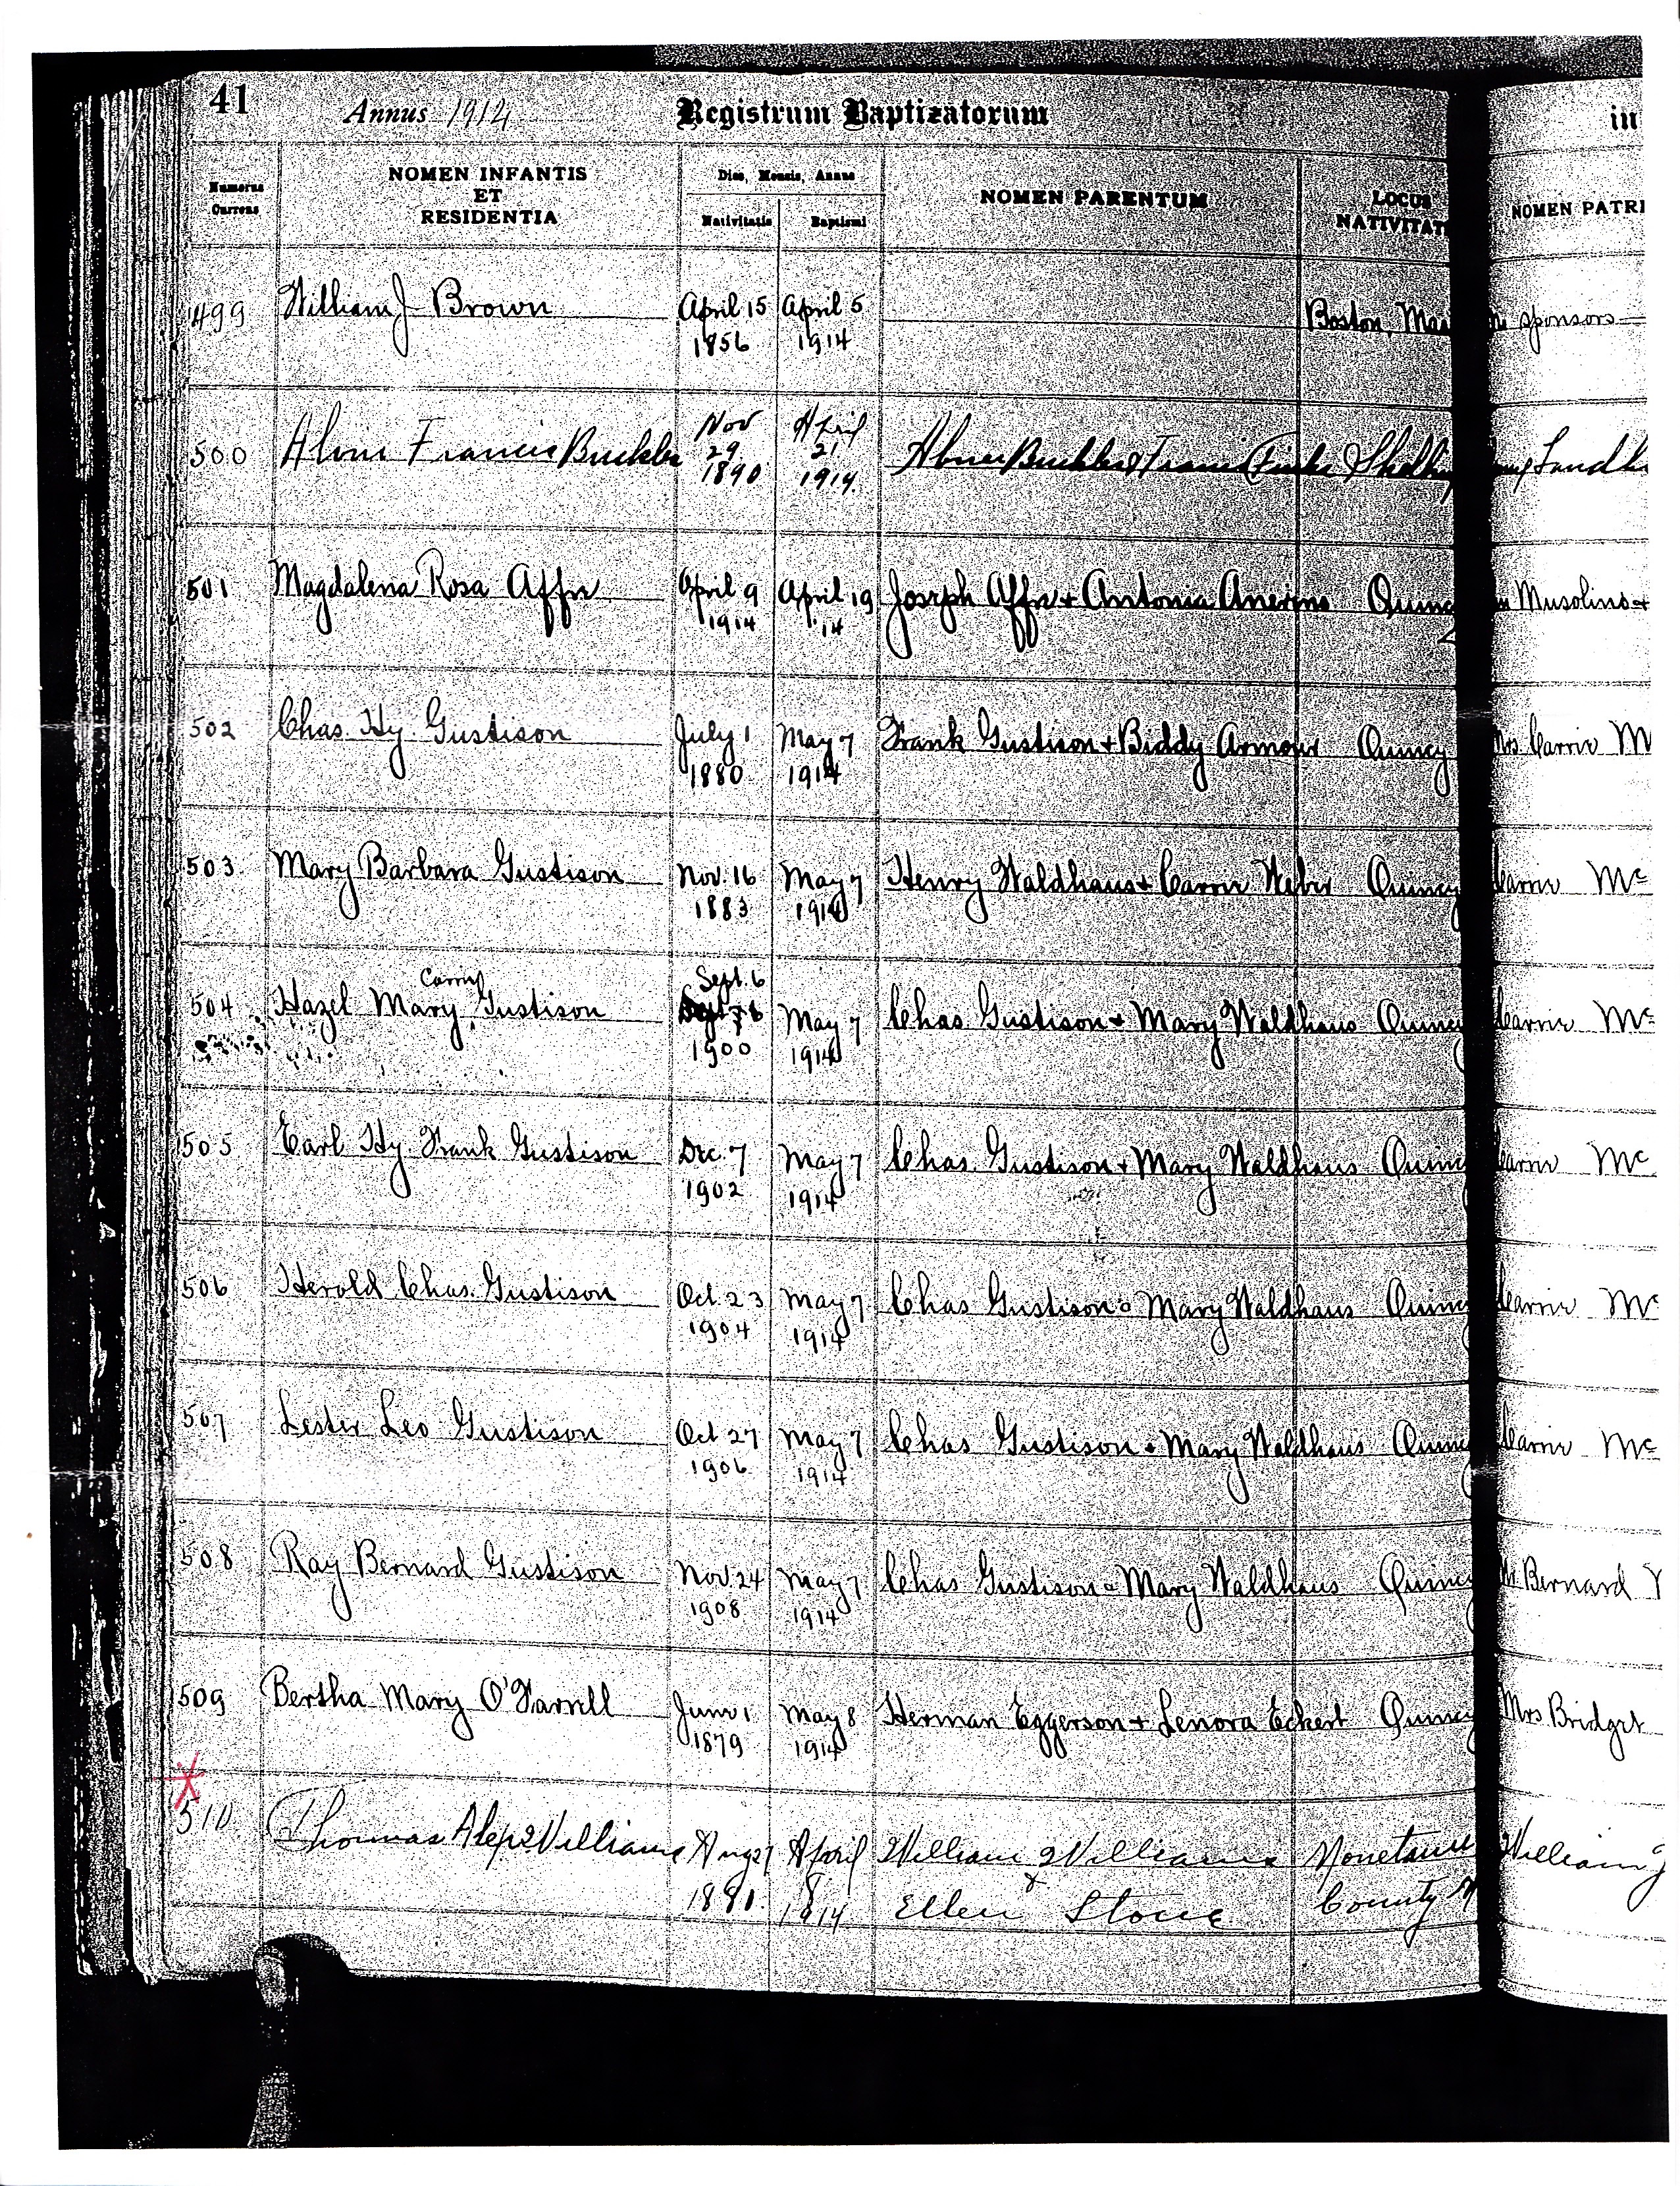 41 Annus 1914 Registrum Baptizatorum in
Numerus Currens
NOMEN INFANTIS ET RESIDENTIA
Dies, Mensis, Annus
Nativitatis Baptismi
NOMEN PARENTUM
LOCUS NATIVITAT
NOMEN PATRI
499 William J Brown April 15 April 5 Boston, Mas sponsors
1856 1914
500 Francis Nov April
29 21
1890 1914
501 Magdalena Rosa Affre April 9 April 19 Joseph Affre + Antonia Quincy Musolino +
1914 14
502 Chas. Hy. Gustison July 1 May 7 Frank Gustison + Biddy Armour Quincy Mrs Carrie M
1880 1914
503. Mary Barbara Gustison Nov. 16 May 7 Henry Waldhaus + Carrie Weber Quincy Carrie Mc
1883 1914
Sept. 6
504 Hazel Mary Gustison May 7 Chas Gustison + Mary Waldhaus Quincy Carrie Mc
1900 1914
505 Earl Hy Frank Gustison Dec. 7 May 7 Chas. Gustison + Mary Waldhaus Quincy Carrie Mc
1902 1914
506 Herold Chas. Gustison Oct. 23 May 7 Chas Gustison & Mary Waldhaus Quincy Carrie Mc
1904 1914
507 Lester Leo Gustison Oct 27 May 7 Chas Gustison & Mary Waldhaus Quincy Carrie Mc
1906 1914
508 Ray Bernard Gustison Nov 24 May 7 Chas Gustison & Mary Waldhaus Quincy Bernard
1908 1914
509 Bertha Mary O'Farrell June 1 May 8 Herman Eggerson + Lenora Eckert Quincy Mrs Bridget
1879 1914
510 Thomas Alex Williams Aug 27 April William Williams William J
1881. 8 &
1914 Ellen Stone County